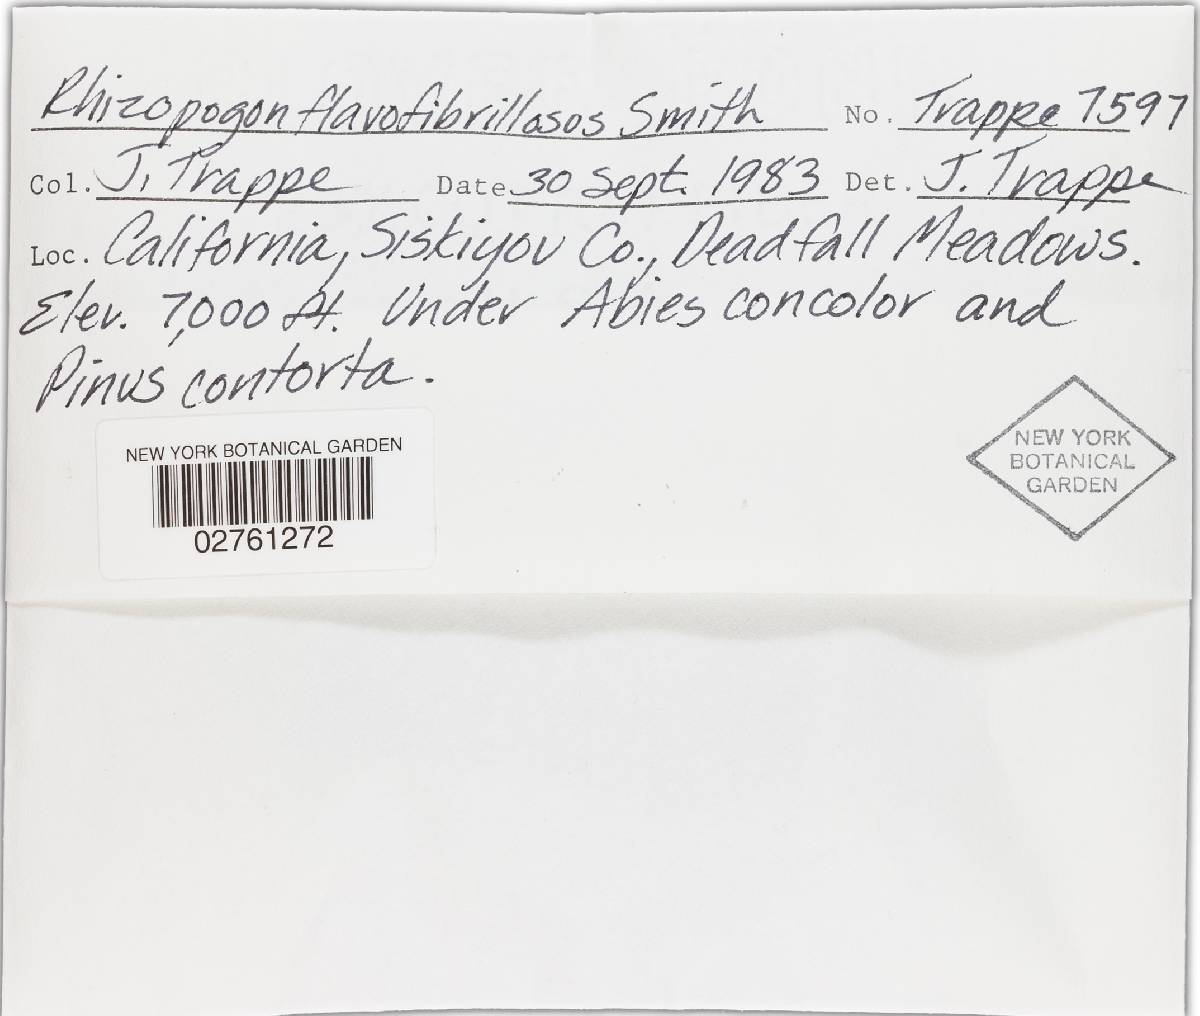 Rhizopogon flavofibrillosos Smith No. Trappe 7597
Col. J. Trappe Date 30 Sept. 1983 Det. J. Trappe
Loc. California, Siskiyou Co., Deadfall Meadows.
Elev. 7,000 ft. Under Abies concolor and
Pinus contorta.
NEW YORK BOTANICAL GARDEN
02761272
NEW YORK
BOTANICAL
GARDEN